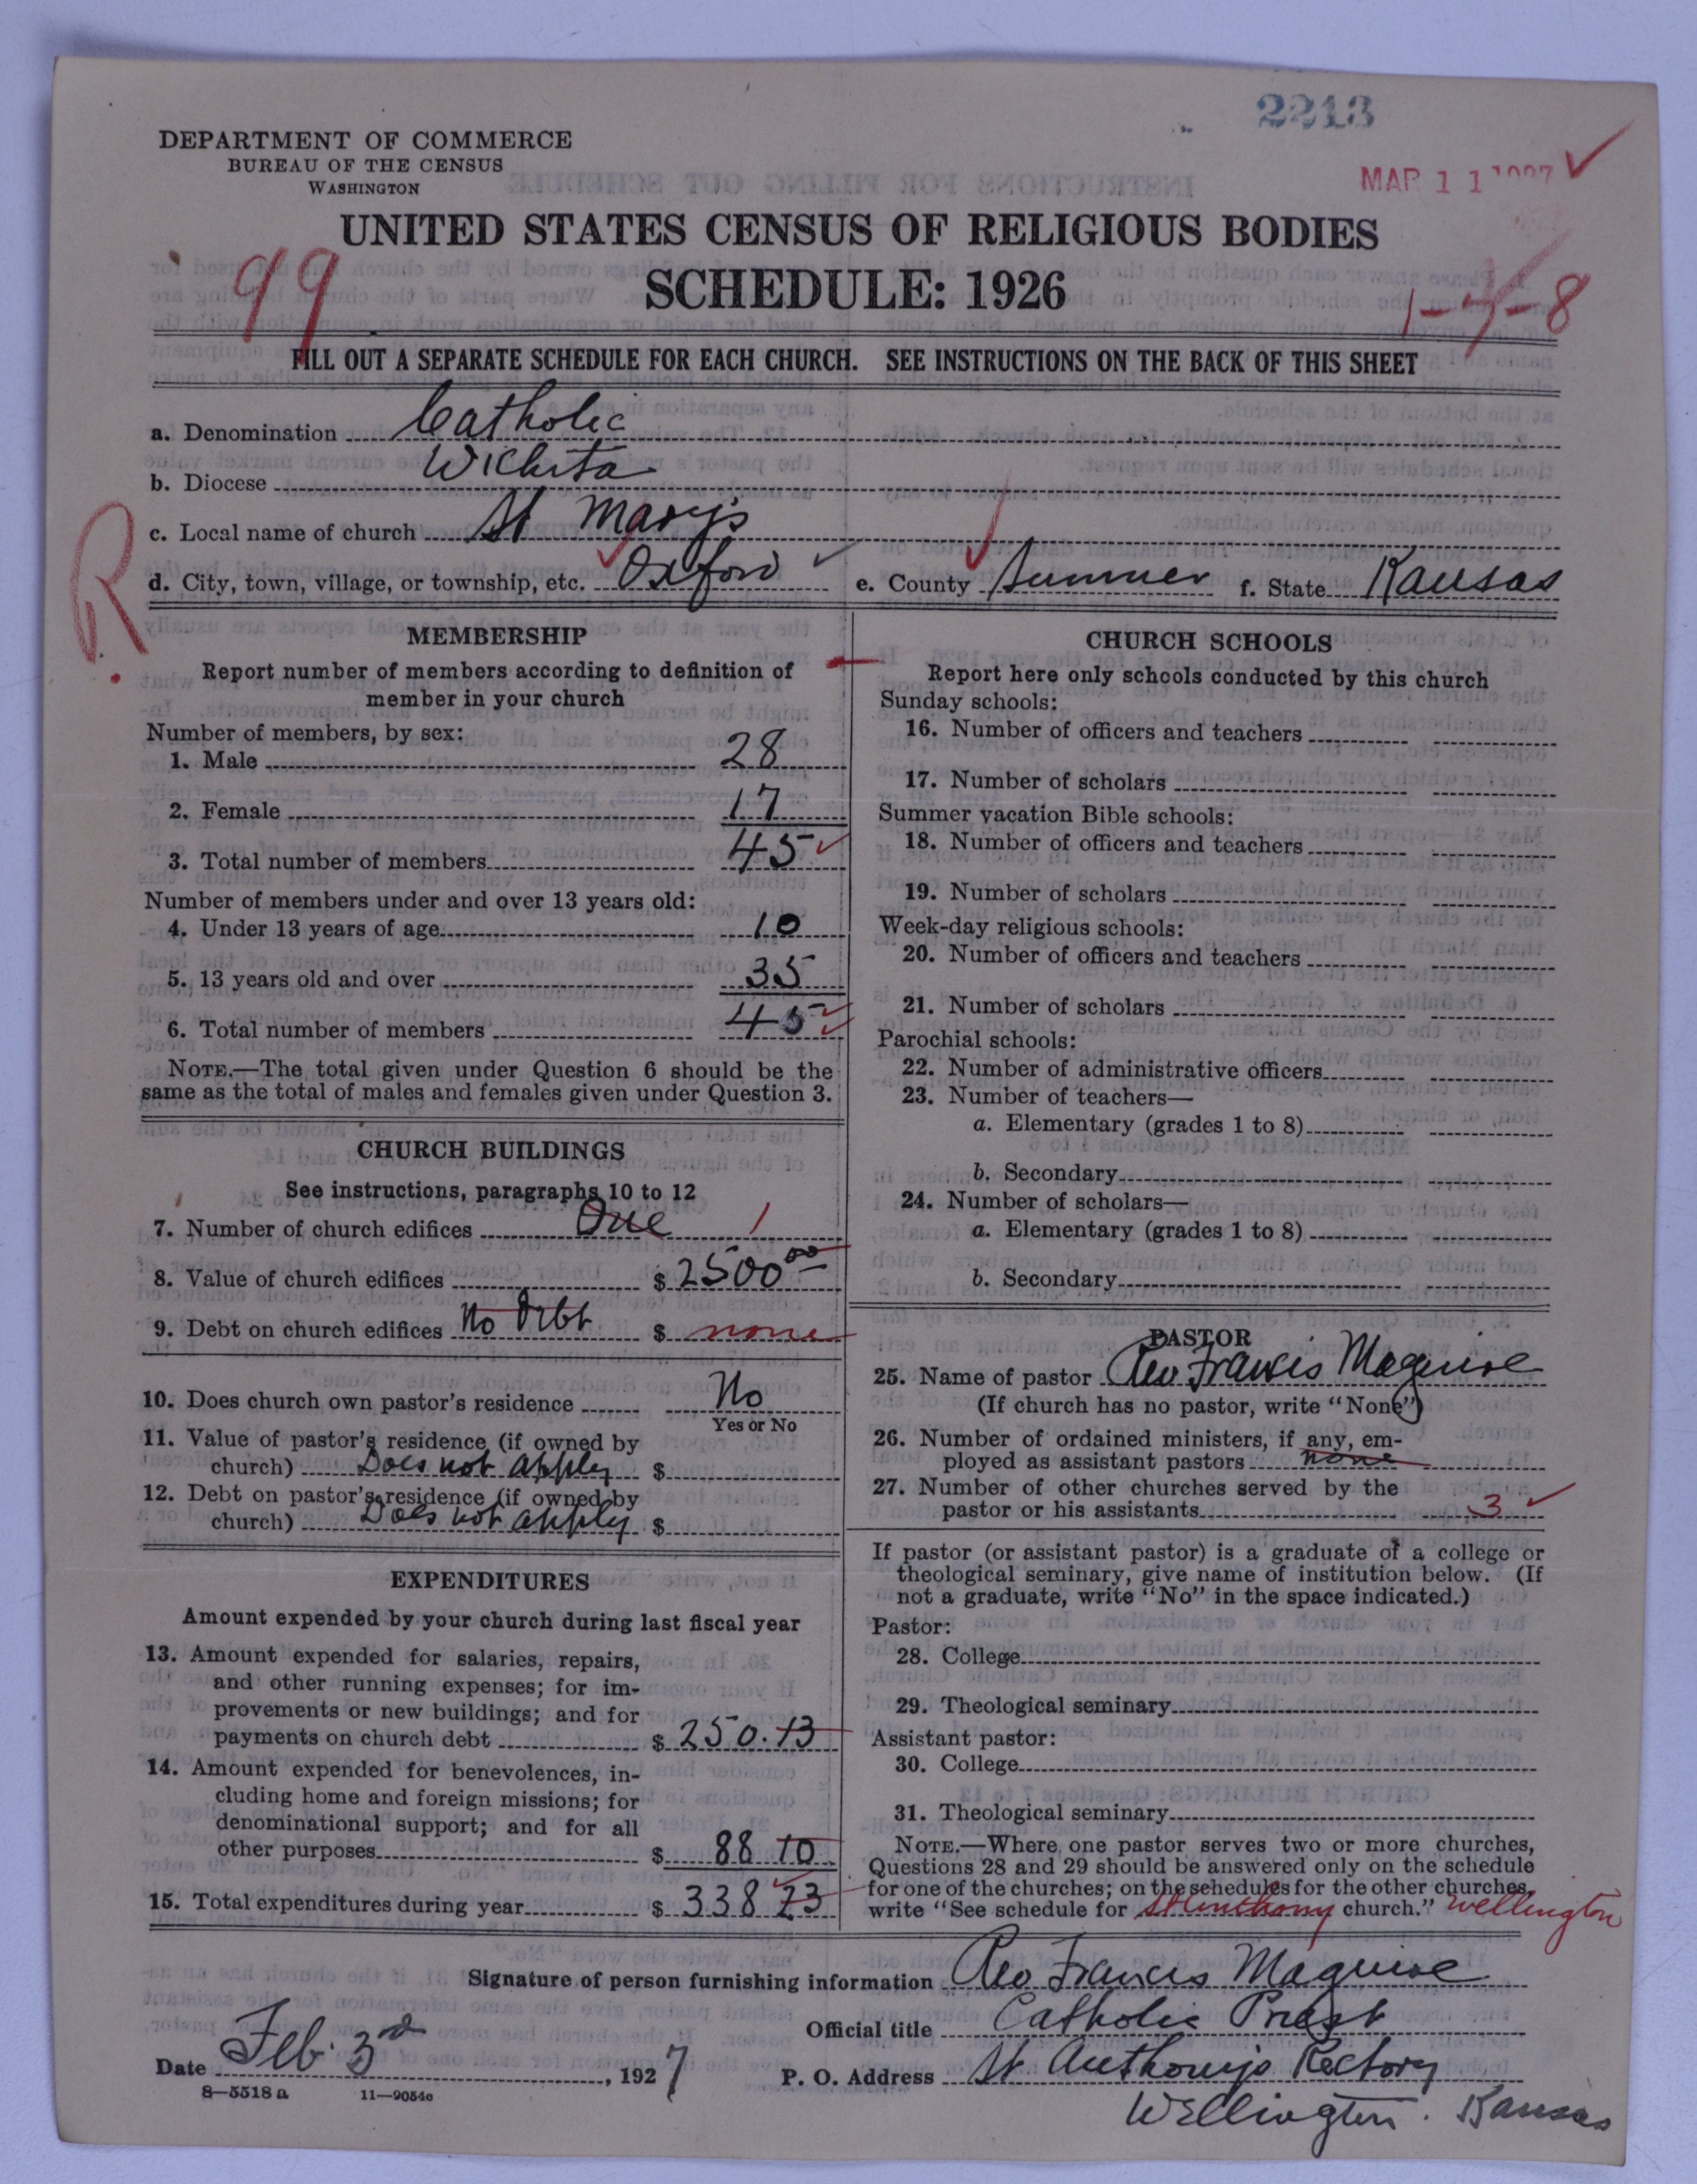 2213
MAR 11 1927
DEPARTMENT OF COMMERCE
BUREAU OF THE CENSUS
WASHINGTON
UNITED STATES CENSUS OF RELIGIOUS BODIES
SCHEDULE: 1926
99
1-7-8
FILL OUT A SEPARATE SCHEDULE FOR EACH CHURCH. SEE INSTRUCTIONS ON THE BACK OF THIS SHEET
a. Denomination Catholic
b. Diocese Wichita
c. Local name of church St Mary's
d. City, town, village, or township, etc. Oxford e. County Sumner f. State Kansas
R.
MEMBERSHIP
Report number of members according to definition of
member in your church
Number of members, by sex:
1. Male 28
2. Female 17
3. Total number of members 45
Number of members under and over 13 years old:
4. Under 13 years of age 10
5. 13 years old and over 35
6. Total number of members 45
NOTE.—The total given under Question 6 should be the
same as the total of males and females given under Question 3.
CHURCH BUILDINGS
See instructions, paragraphs 10 to 12
7. Number of church edifices One 1
8. Value of church edifices $ 2500 00
9. Debt on church edifices No Debt $ none
10. Does church own pastor's residence No
Yes or No
11. Value of pastor's residence (if owned by
church) Does not apply $
12. Debt on pastor's residence (if owned by
church) Does not apply $
EXPENDITURES
Amount expended by your church during last fiscal year
13. Amount expended for salaries, repairs,
and other running expenses; for im-
provements or new buildings; and for
payments on church debt $ 250.13
14. Amount expended for benevolences, in-
cluding home and foreign missions; for
denominational support; and for all
other purposes $ 88 10
15. Total expenditures during year $ 338 23
CHURCH SCHOOLS
Report here only schools conducted by this church
Sunday schools:
16. Number of officers and teachers
17. Number of scholars
Summer vacation Bible schools:
18. Number of officers and teachers
19. Number of scholars
Week-day religious schools:
20. Number of officers and teachers
21. Number of scholars
Parochial schools:
22. Number of administrative officers
23. Number of teachers—
a. Elementary (grades 1 to 8)
b. Secondary
24. Number of scholars—
a. Elementary (grades 1 to 8)
b. Secondary
PASTOR
25. Name of pastor Rev Francis Maguire
(If church has no pastor, write "None")
26. Number of ordained ministers, if any, em-
ployed as assistant pastors none
27. Number of other churches served by the
pastor or his assistants 3
If pastor (or assistant pastor) is a graduate of a college or
theological seminary, give name of institution below. (If
not a graduate, write "No" in the space indicated.)
Pastor:
28. College
29. Theological seminary
Assistant pastor:
30. College
31. Theological seminary
NOTE.—Where one pastor serves two or more churches,
Questions 28 and 29 should be answered only on the schedule
for one of the churches; on the schedules for the other churches,
write "See schedule for St Anthony church." Wellington
Signature of person furnishing information Rev Francis Maguire
Official title Catholic Priest
Date Feb. 3rd, 1927
P. O. Address St Anthony's Rectory
Wellington. Kansas
8—5518 a 11—9054c